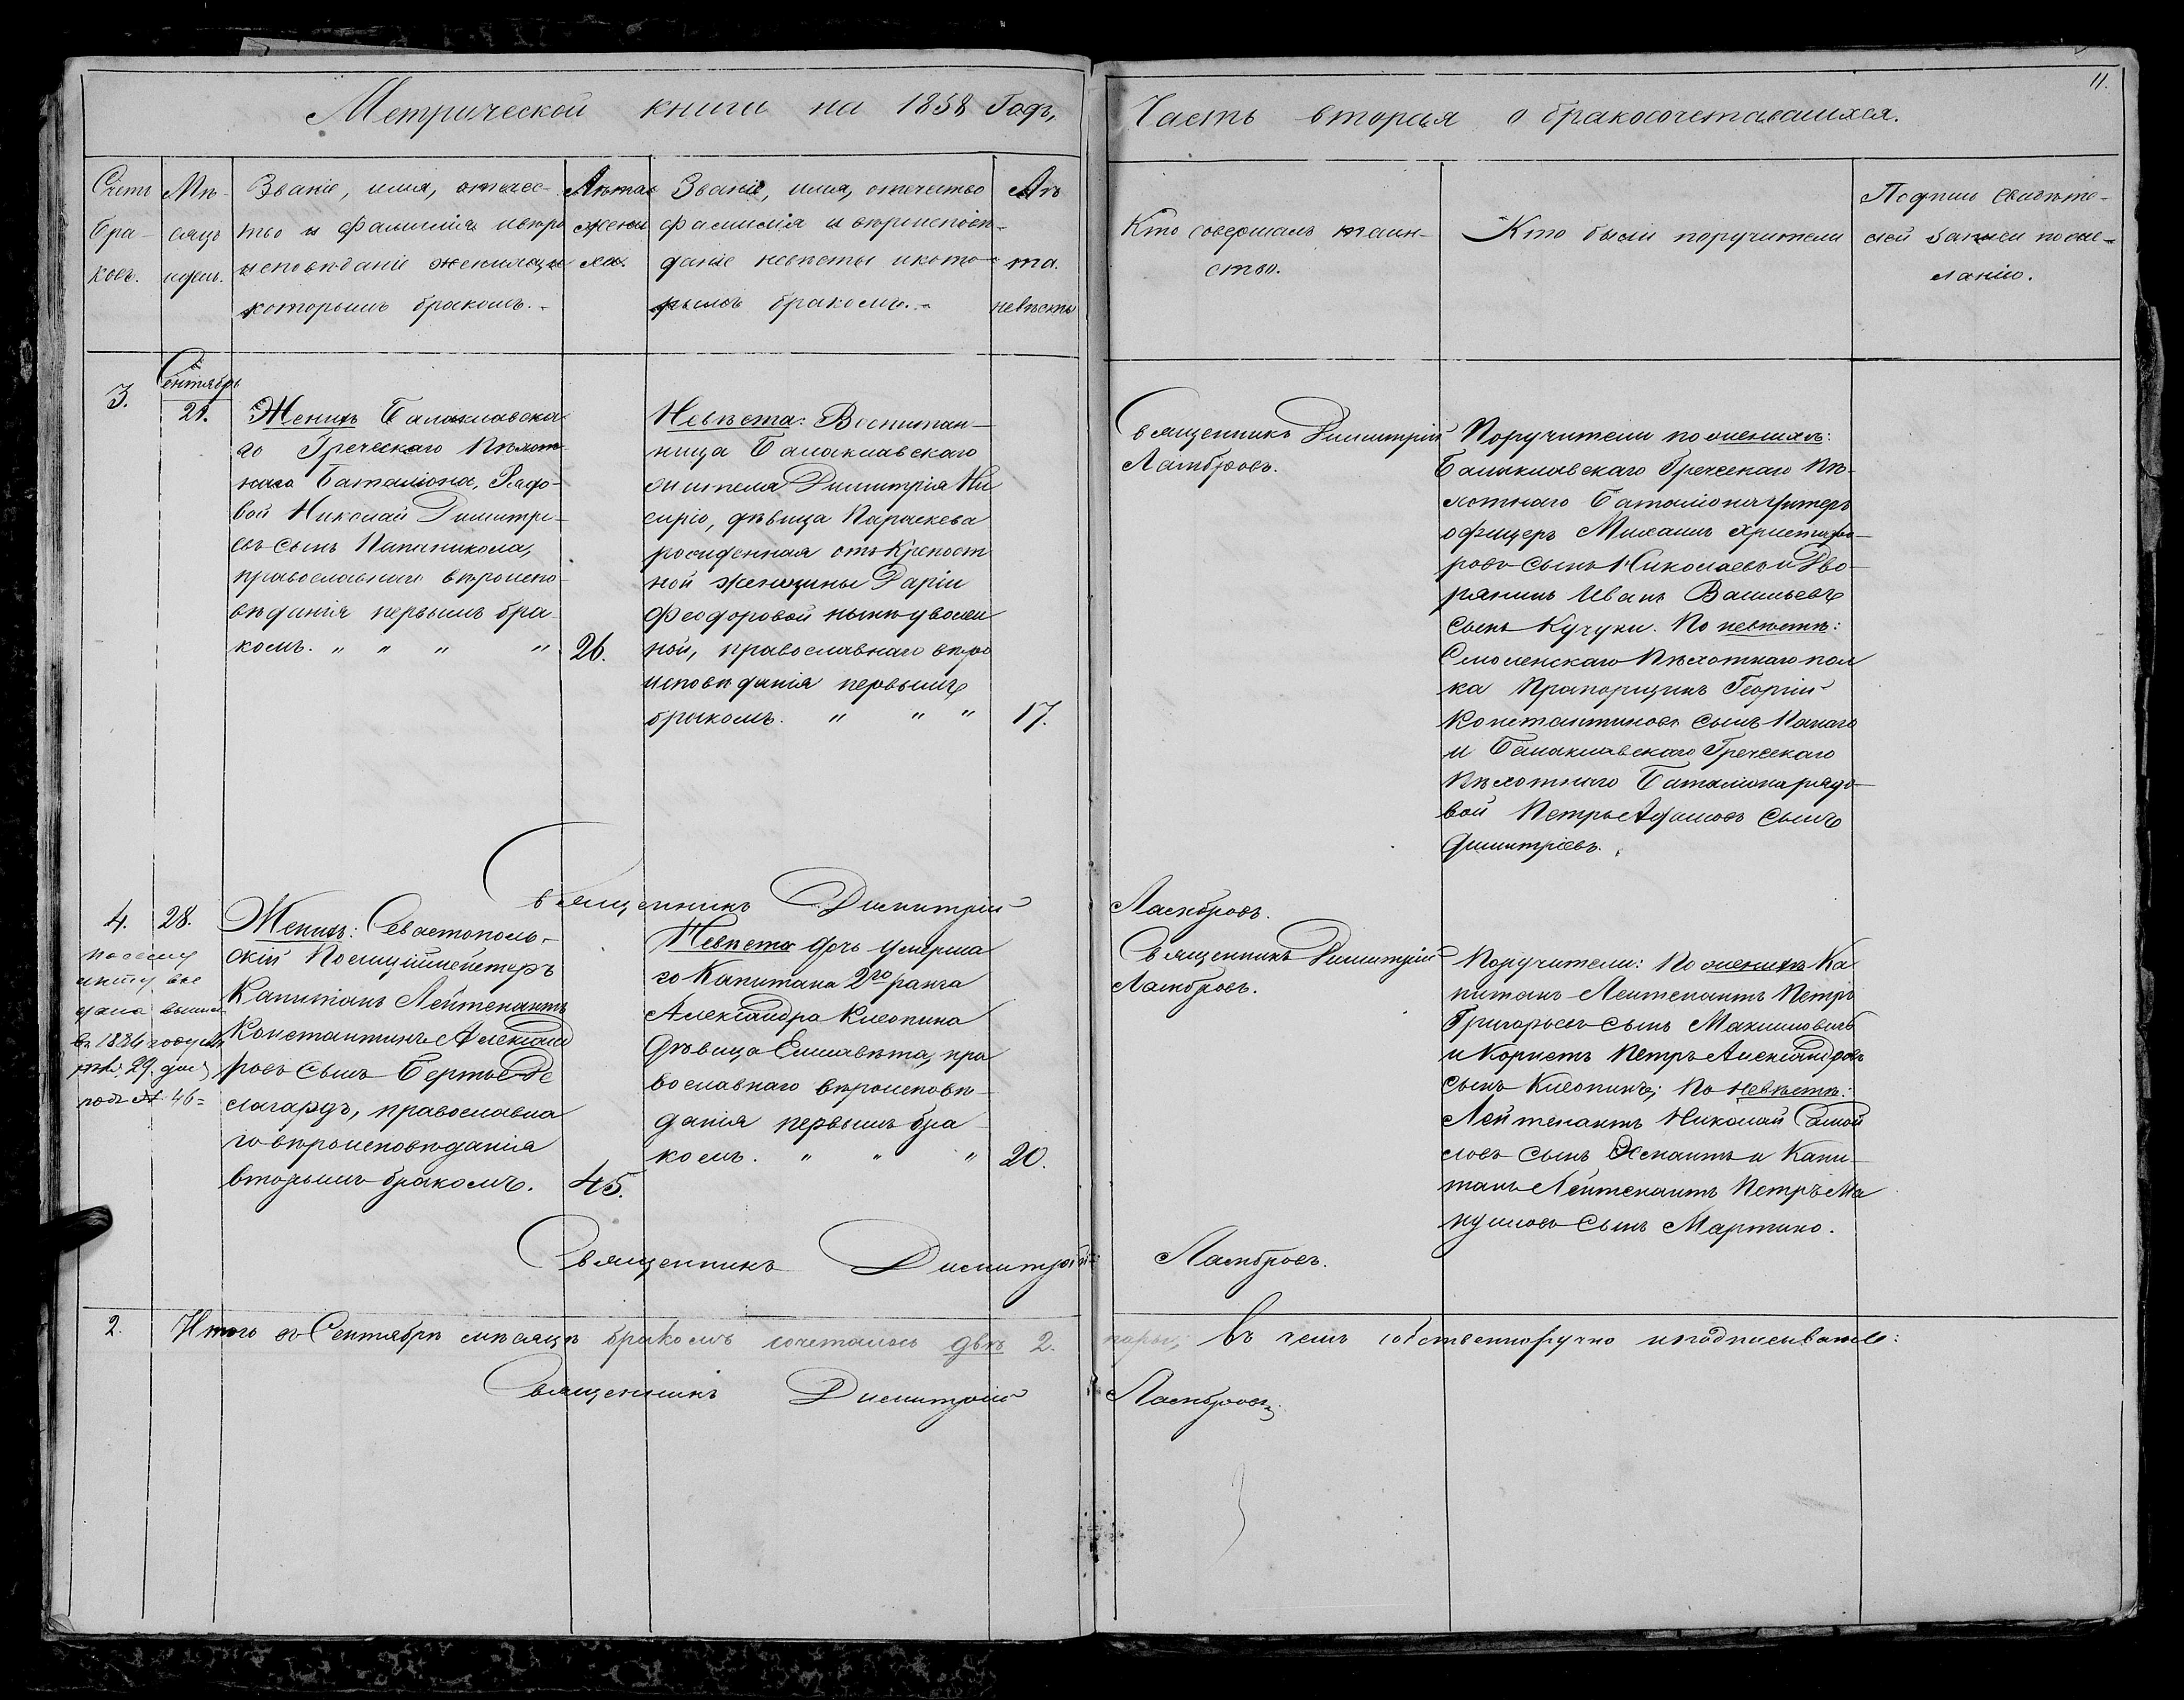 Метрической книги на 1858 Годъ,
Часть вторая о бракосочетавшихся.
11.
Счетъ
бра-
ковъ.
Мѣ-
сяцъ
и день.
Званіе, имя, отчес-
тво и фамилія и вѣро
исповѣданіе жениха и
которымъ бракомъ.
Лѣта
жени
ха.
Званіе, имя, отчество
фамилія и вѣроисповѣ-
даніе невѣсты и кото-
рымъ бракомъ.
Лѣ
та.
невѣсты
Кто совершалъ таин-
ство.
Кто были поручители
Подпись свидѣте-
лей записи по же-
ланію.
3.
Сентябрь
21.
Женихъ Балаклавска-
го Греческаго Пѣхот-
наго Баталіона, Рядо-
вой Николай Димитрі-
евъ сынъ Папаникола,
православнаго вѣроиспо-
вѣданія первымъ бра-
комъ. " " " "
26.
Невѣста: Воспитан-
ница Балаклавскаго
жителя Димитрія Ни
сиріо, дѣвица Параскева
рожденная отъ Крѣпост
ной женщины Даріи
Феодоровой нынѣ уволен
ной, православнаго вѣро
исповѣданія первымъ
бракомъ. " " "
17.
Священникъ Димитрій
Ламбровъ.
Поручители по женихѣ:
Балаклавскаго Греческаго Пѣ-
хотнаго Баталіона Унтеръ
офицеръ Михаилъ Христофо-
ровъ сынъ Николаевъ и Дво-
рянинъ Иванъ Васильевъ
сынъ Кучуки. По невѣстѣ:
Смоленскаго Пѣхотнаго пол
ка Прапорщикъ Георгій
Константиновъ сынъ
и Балаклавскаго Греческаго
Пѣхотнаго Баталіона рядо-
вой Петръ Адамовъ сынъ
Димитріевъ.
Священникъ Димитрій
Ламбровъ.
4.
28.
По сему
акту вы
дана выпись
въ 18 году
29. дня
подъ № 46=
Женихъ: Севастополь-
скій Полиціймейстеръ
Капитанъ Лейтенантъ
Константинъ Александ
ровъ сынъ Бертье Де
лагардъ, православна
го вѣроисповѣданія
вторымъ бракомъ.
45.
Невѣста дочь умерша
го Капитана 2го ранга
Александра Кисонина
дѣвица Елисавета, пра
вославнаго вѣроисповѣ-
данія первымъ бра
комъ. " " "
20.
Священникъ Димитрій
Ламбровъ.
Поручители: По женихѣ Ка
питанъ-Лейтенантъ Петръ
Григорьевъ сынъ Махиновичъ
и Корнетъ Петръ Александровъ
сынъ Кисонинъ; По невѣстѣ:
Лейтенантъ Николай Самой
ловъ сынъ и Капи-
танъ Лейтенантъ Петръ Ма
нуиловъ сынъ Мартино.
Священникъ Димитрій
Ламбровъ.
2.
Итого въ Сентябрѣ мѣсяцѣ бракомъ сочеталось двѣ 2. пары; въ чемъ собственноручно и подписываюсь:
Священникъ Димитрій
Ламбровъ